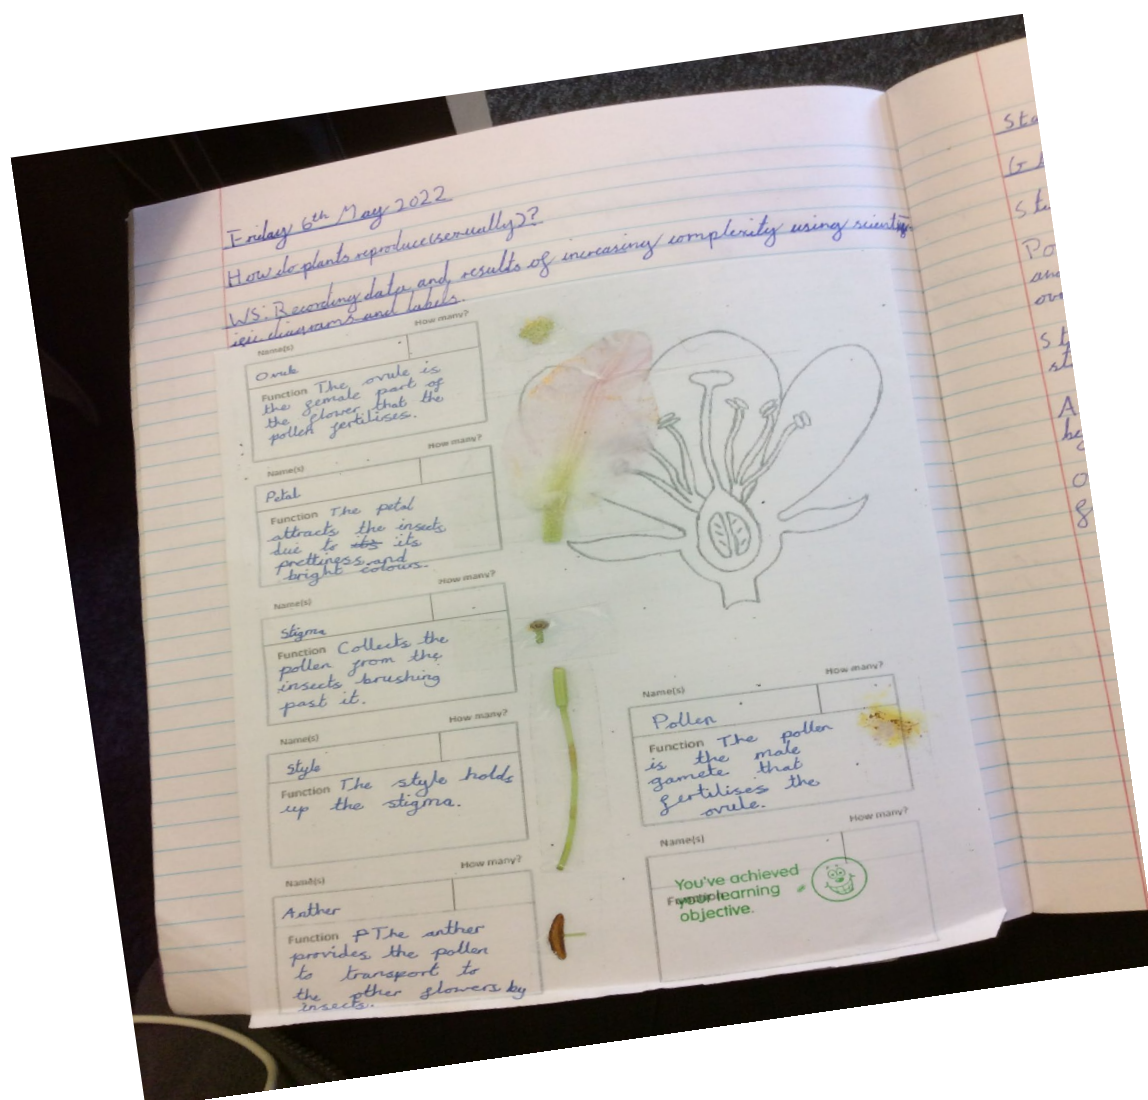 Friday 6th May 2022
How do plants reproduce (sexually)?
WS: Recording data and results of increasing complexity using scientif-
ic diagrams and labels.
Name(s) How many?
Ovule
Function The ovule is
the female part of
the flower that the
pollen fertilises.
Name(s) How many?
Petal
Function The petal
attracts the insects
due to its its
prettiness and
bright colours.
Name(s) How many?
Stigma
Function Collects the
pollen from the
insects brushing
past it.
Name(s) How many?
Style
Function The style holds
up the stigma.
Name(s) How many?
Anther
Function The anther
provides the pollen
to transport to
the other flowers by
insects.
Name(s) How many?
Pollen
Function The pollen
is the male
gamete that
fertilises the
ovule.
Name(s) How many?
Function
You've achieved
your learning
objective.
St
Po
an
ov
st
A
be